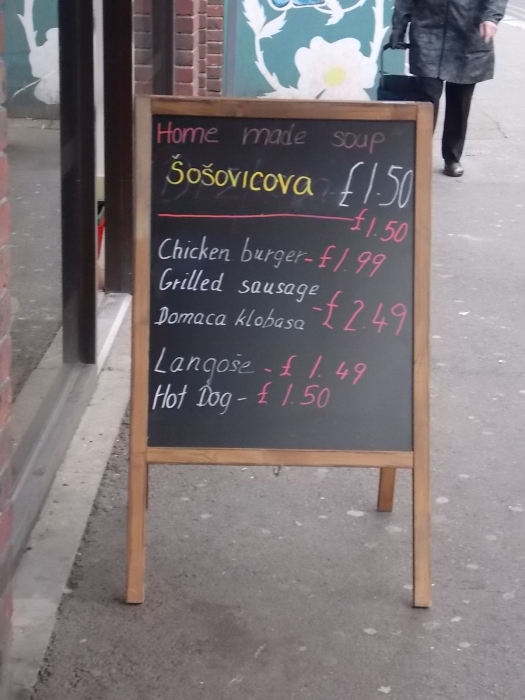 Home made soup
Šošovicova £1.50
£1.50
Chicken burger - £1.99
Grilled sausage
Domaca klobasa - £2.49
Langoše - £1.49
Hot Dog - £1.50